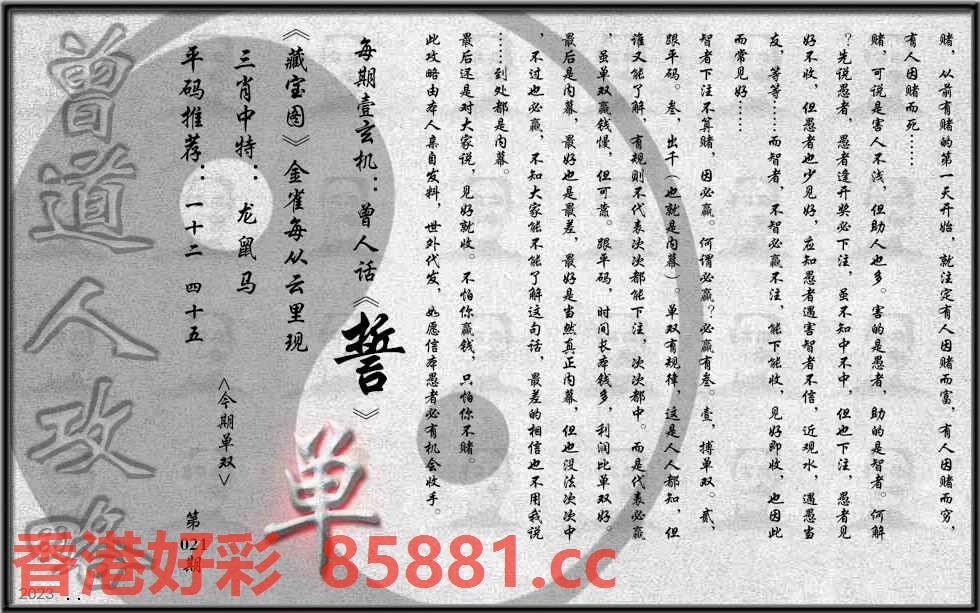 赌，从前有赌的第一天开始，就注定有人因赌而富，有人因赌而穷，
有人因赌而死……
赌，可说是害人不浅，但助人也多。害的是愚者，助的是智者。何解
？先说愚者，愚者逢开奖必下注，虽不知中不中，但也下注，愚者见
好不收，但愚者也少见好，应知愚者遇害智者不信，近观水，遇愚当
友，等等……而智者，不智必赢不注，能下能收，见好即收，也因此
而常见好……
智者下注不算赌，因必赢。何谓必赢？必赢有叁。壹，搏单双。贰，
跟平码。叁，出千（也就是内幕）。单双有规律，这是人人都知，但
谁又能了解，有规则不代表次次都能下注，次次都中。而是代表必赢
，虽单双赢钱慢，但可靠。跟平码，时间长本钱多，利润比单双好。
最后是内幕，最好也是最差，最好是当然真正内幕，但也没法次次中
，不过也必赢，不知大家能不能了解这句话，最差的相信也不用我说
……到处都是内幕。
最后还是对大家说，见好就收。不怕你赢钱，只怕你不赌。
此攻略由本人亲自发料，世外代发，如愿信本愚者必有机会收手。
每期壹玄机：曾人话《誓》
《藏宝图》金雀每从云里现
三肖中特：龙鼠马
平码推荐：一十二 四十五
<今期单双>
单
第021期
曾道人攻略
香港好彩 85881.cc
2023